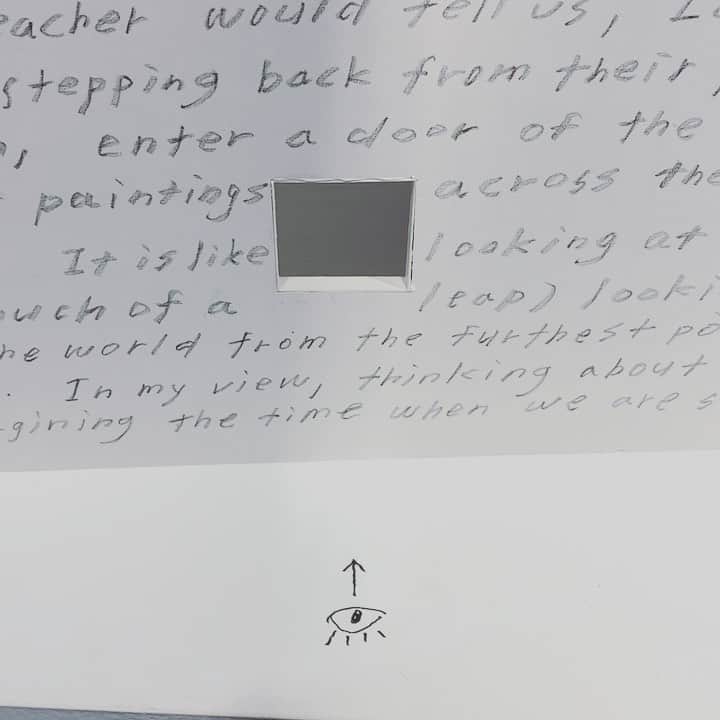 eacher would tell us,
stepping back from their
enter a door of the
paintings across the
It is like looking at
ouch of a leap) looki
he world from the furthest po
. In my view, thinking about
gining the time when we are s